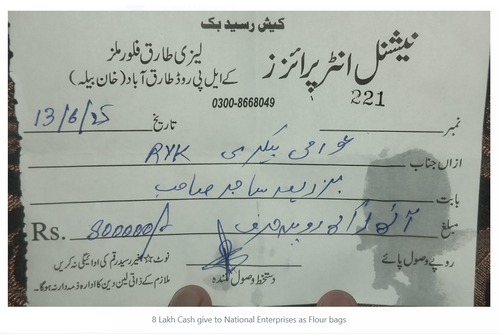 کیش رسید بک
نیشنل انٹرپرائزز
لیزی طارق فلورملز
کے ایل پی روڈ طارق آباد (خان بیلہ)
0300-8668049
221
نمبر تاریخ 13/6/25
ازاں جناب عوامی بیکری RYK
بابت بذریعہ ساجد صاحب
مبلغ آٹھ لاکھ روپیہ صرف Rs. 800000/-
روپے وصول پائے
دستخط وصول کنندہ
نوٹ: بغیر رسید رقم کی ادائیگی نہ کریں
ملازم کے ذاتی لین دین کا ادارہ ذمہ دار نہ ہوگا۔
8 Lakh Cash give to National Enterprises as Flour bags